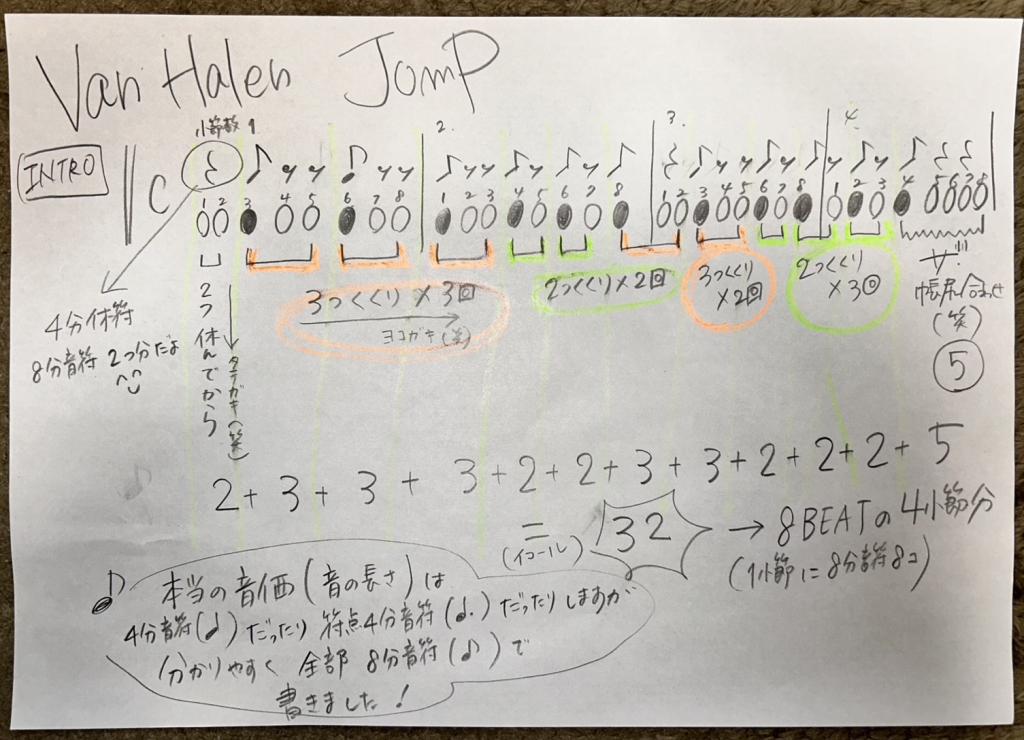 Van Halen Jomp
小節数 1 2. 3. 4
INTRO C
1 2 3 4 5 6 7 8 1 2 3 4 5 6 7 8 1 2 3 4 5 6 7 8 1 2 3 4 5 6 7 8
4分休符
8分音符 2つ分だよ
2つ休んでから
タテガキ(笑)
3つくくり × 3回
ヨコガキ(笑)
2つくくり×2回
3つくくり
×2回
2つくくり
×3回
サ!!!
帳尻合わせ
(笑)
5
2 + 3 + 3 + 3 + 2 + 2 + 3 + 3 + 2 + 2 + 2 + 5
= 32 → 8BEATの4小節分
(イコール)
(1小節に8分音符8コ)
♪ 本当の音価(音の長さ)は
4分音符(♩)だったり 符点4分音符(♩.)だったりしますが
分かりやすく 全部 8分音符(♪)で
書きました!